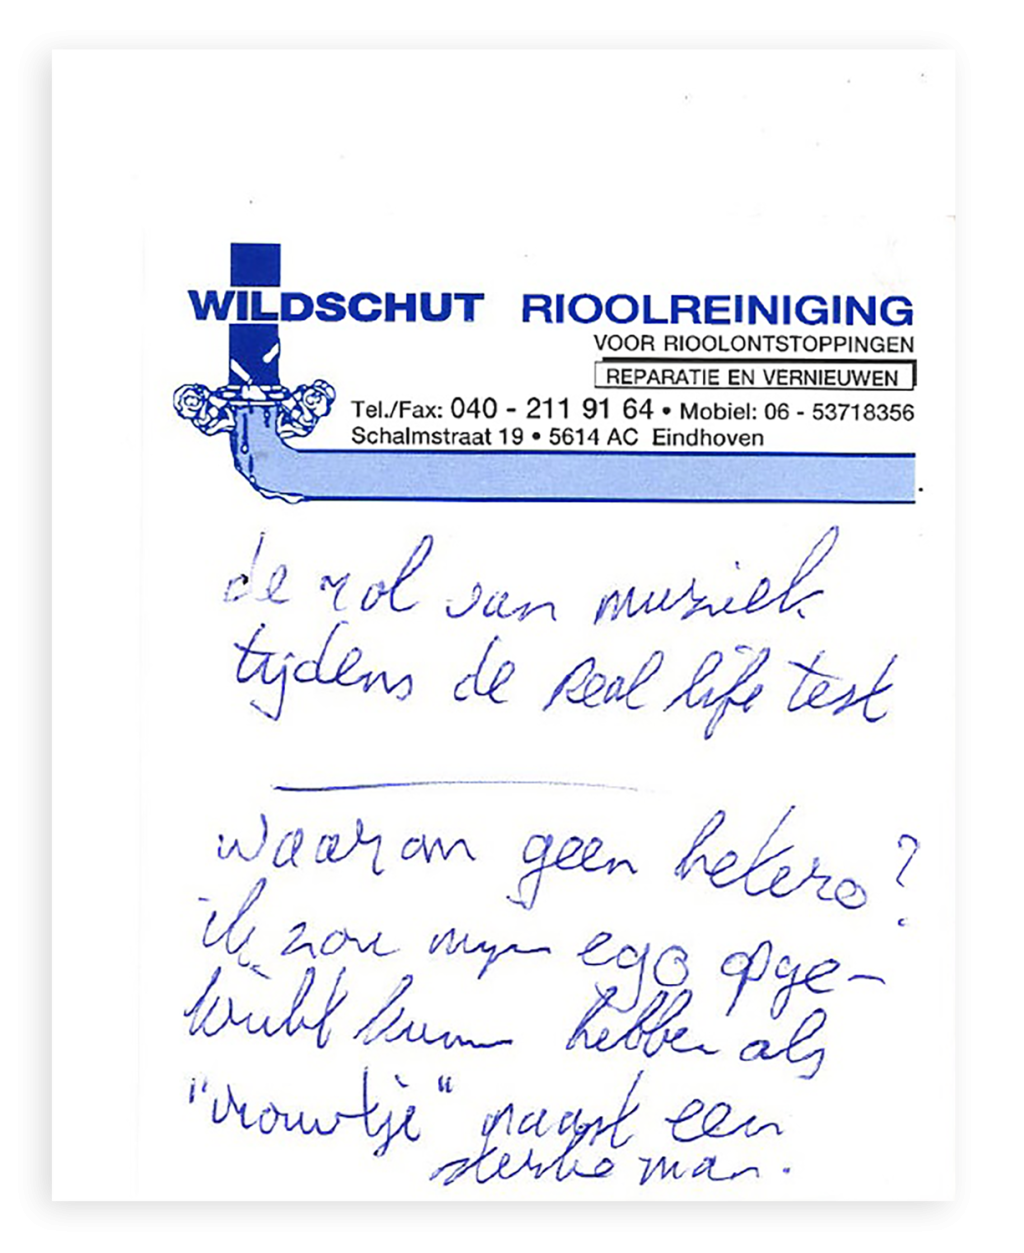 WILDSCHUT RIOOLREINIGING
VOOR RIOOLONTSTOPPINGEN
REPARATIE EN VERNIEUWEN
Tel./Fax: 040 - 211 91 64 • Mobiel: 06 - 53718356
Schalmstraat 19 • 5614 AC Eindhoven
de rol van muziek
tijdens de Real life test
waarom geen hetero?
ik zou mijn ego opge-
krikt kunnen hebben als
"vrouwtje" naast een
sterke man.